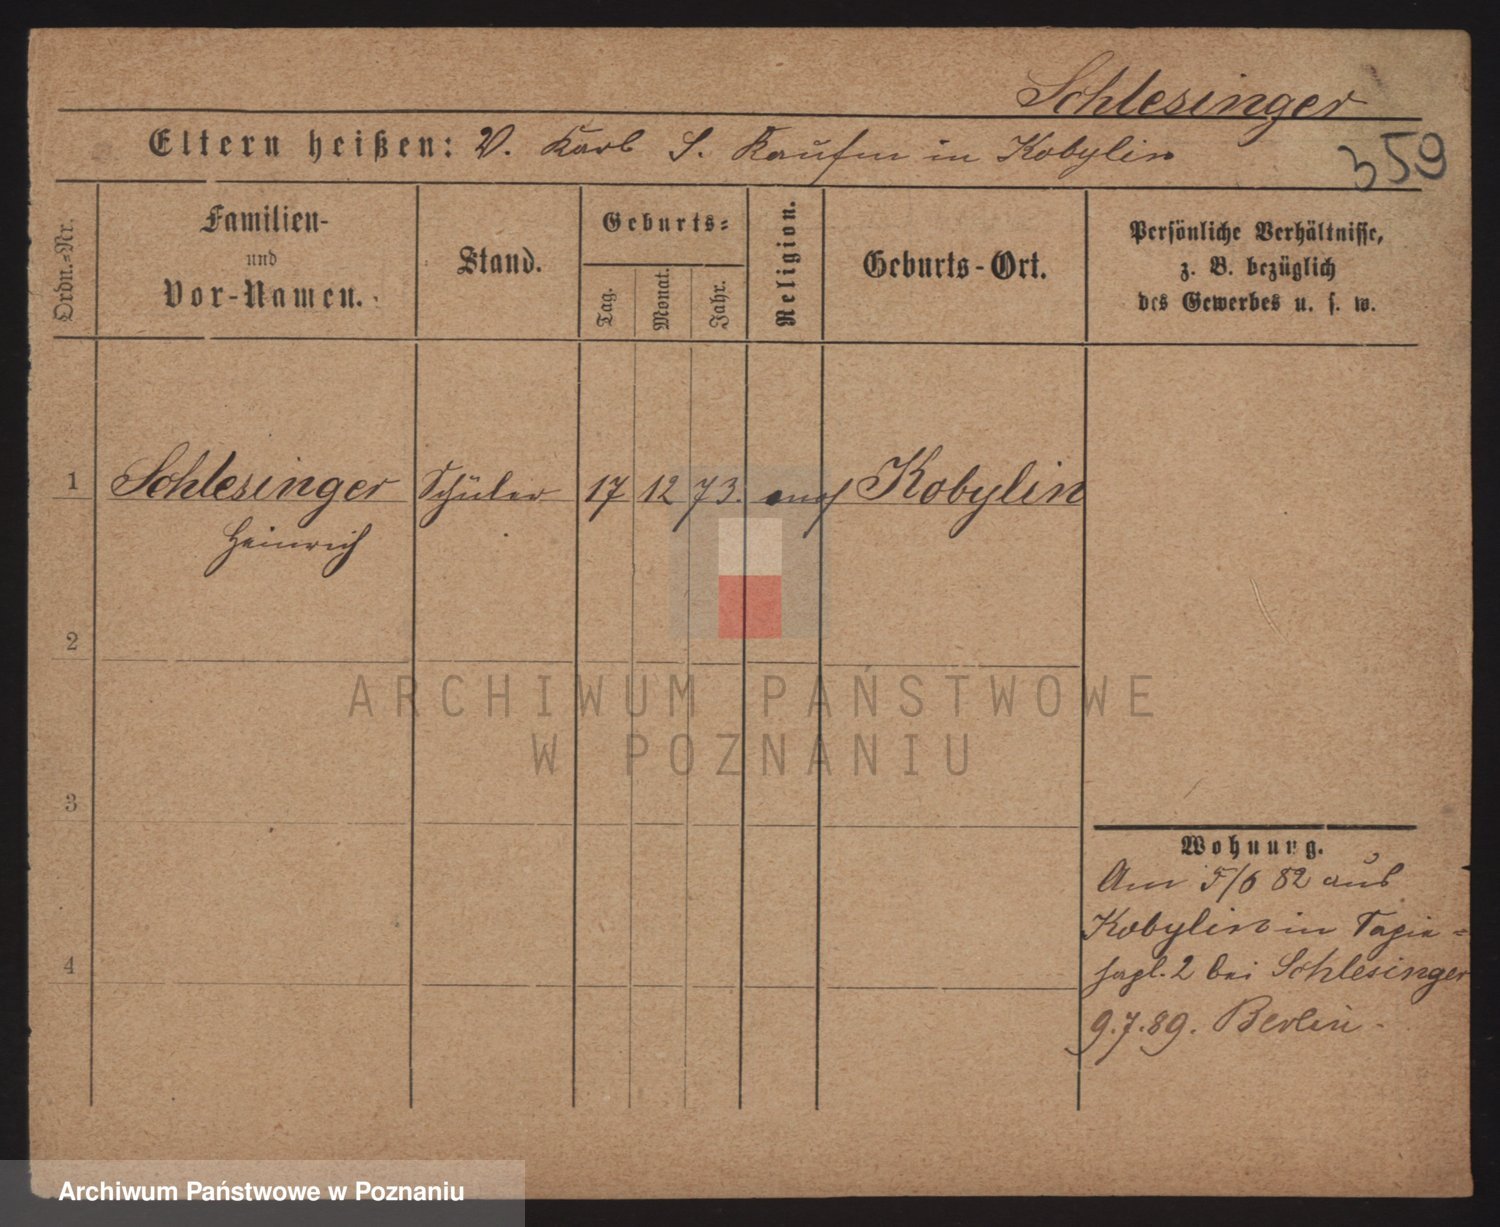 Schlesinger
Eltern heißen: V. Karl S. Kaufm in Kobylin
359
Ordn.-Nr.
Familien-
und
Vor-Namen.
Stand.
Geburts-
Tag.
Monat.
Jahr.
Religion.
Geburts-Ort.
Persönliche Verhältnisse,
z. B. bezüglich
des Gewerbes u. s. w.
1 Schlesinger Schüler 17 12 73. Kobylin
Heinrich
2
ARCHIWUM PAŃSTWOWE
W POZNANIU
3
4
Wohnung.
Am 5/6 82 aus
Kobylin in
2 bei Schlesinger
9.7.89. Berlin.
Archiwum Państwowe w Poznaniu